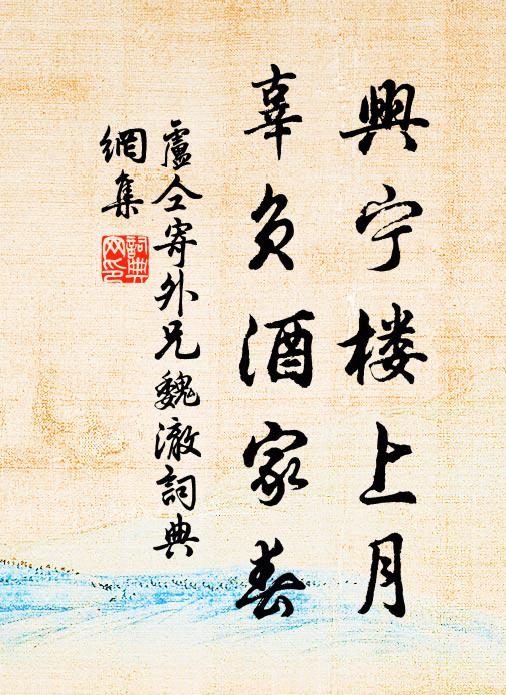 興宁楼上月
辜负酒家春
盧仝寄外兄魏澈詞典
網集
詞典
网印